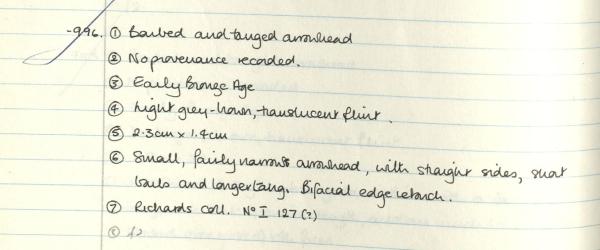 -996. ① Barbed and tanged arrowhead
② No provenance recorded.
③ Early Bronze Age
④ Light grey-brown, translucent flint.
⑤ 2.3cm x 1.4cm
⑥ Small, fairly narrow arrowhead, with straight sides, short
barbs and longer tang. Bifacial edge retouch.
⑦ Richards coll. No I 127 (?)
⑧